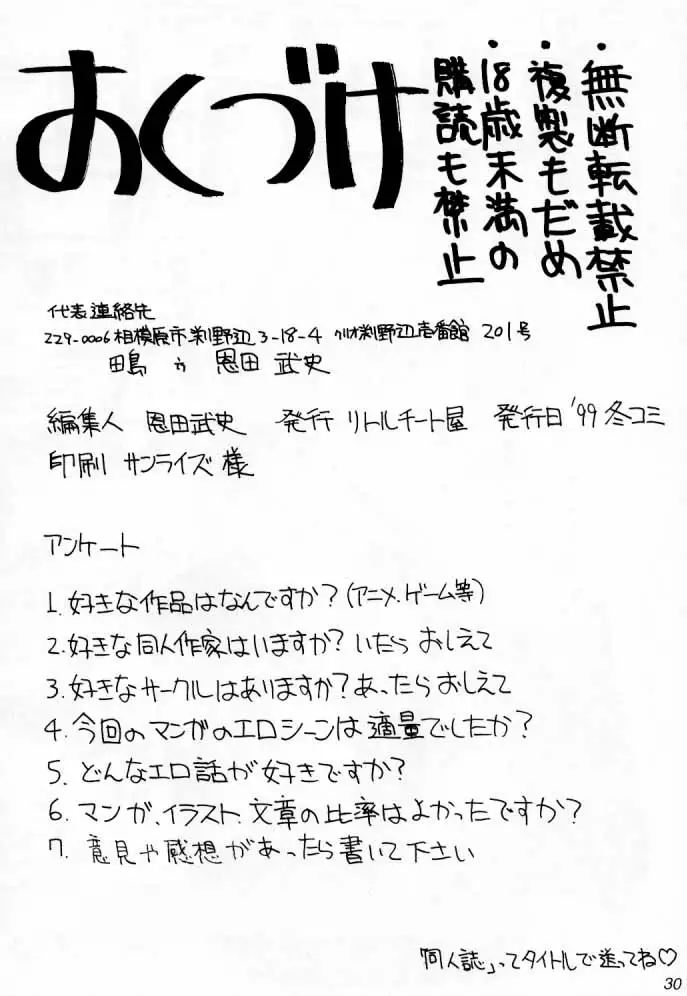 おくづけ
・無断転載禁止
・複製もだめ
・18歳未満の
購読も禁止
代表連絡先
229-0006 相模原市渕野辺3-18-4 クリオ渕野辺壱番館 201号
嶋 方 恩田 武史
編集人 恩田武史 発行 リトルチート屋 発行日 '99 冬コミ
印刷 サンライズ 様
アンケート
1. 好きな作品はなんですか?(アニメ、ゲーム等)
2. 好きな同人作家はいますか? いたら おしえて
3. 好きなサークルはありますか? あったら おしえて
4. 今回のマンガのエロシーンは 適量でしたか?
5. どんなエロ話が 好きですか?
6. マンガ、イラスト、文章の比率はよかったですか?
7. 意見や感想があったら書いて下さい
「同人誌」ってタイトルで送ってね♡
30